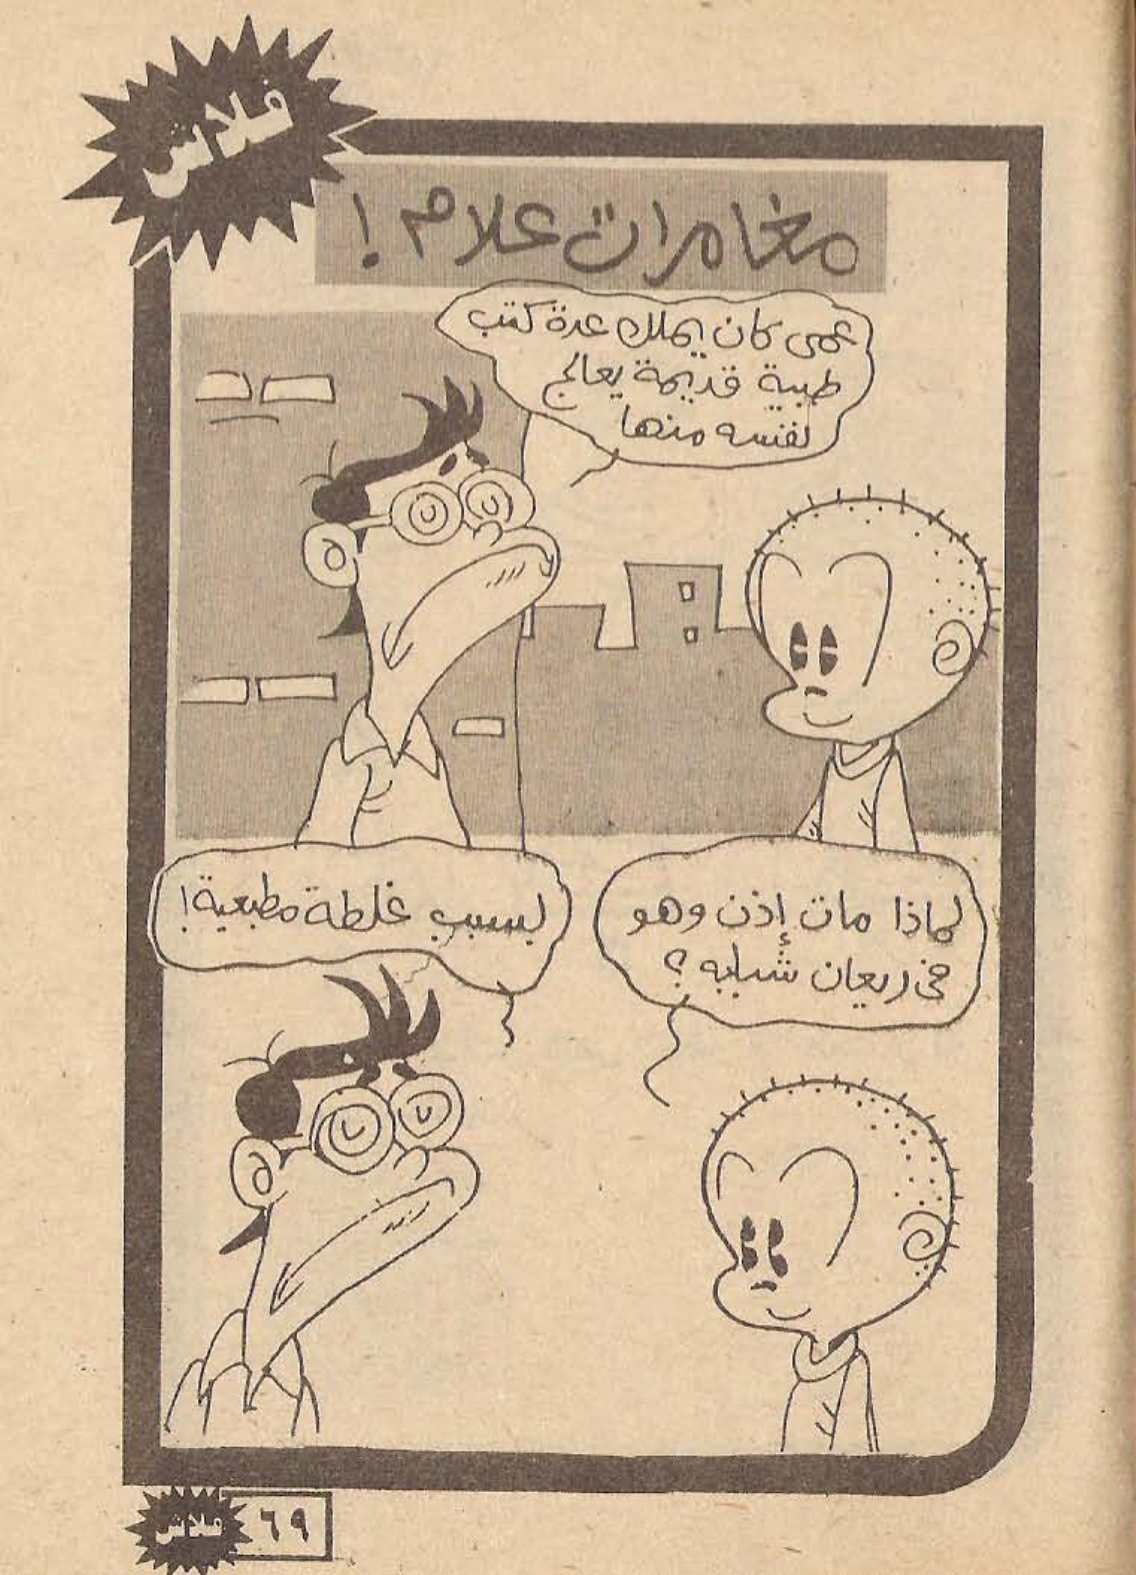 فلاش
مغامرات علام !
عمى كان يملك عدة كتب
طبية قديمة يعالج
نفسه منها
لماذا مات إذن وهو
فى ريعان شبابه ؟
بسبب غلطة مطبعية !
فلاش
٦٩